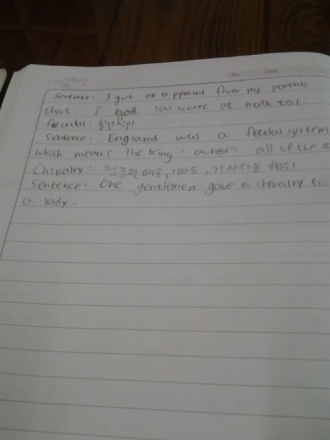 Sentence: I got an approval from my parents
that I had 100 scores of math test.
feudal: 봉건적인
Sentence: England was a feudal system
which means the king "owned" all of the
Chivalry: 정중한 태도, 기사도, 기사다운
Sentence: One gentlemen gave a chivalry to
a lady.